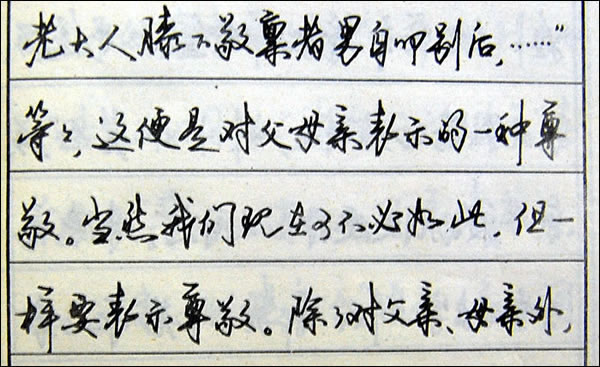 老大人膝下敬禀者男自叩别后,……"
等々,这便是对父母亲表示的一种尊
敬。当然我们现在可不必如此,但一
样要表示尊敬。除了对父亲、母亲外,